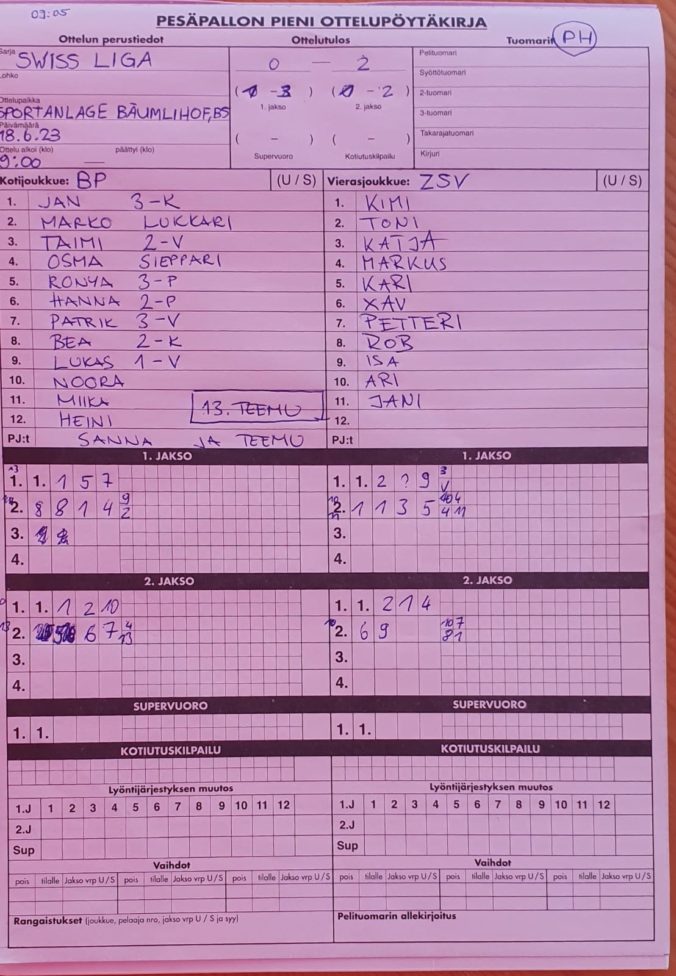 09:05
PESÄPALLON PIENI OTTELUPÖYTÄKIRJA
Ottelun perustiedot
Ottelutulos
Tuomarit PH
Sarja
SWISS LIGA
Lohko
Ottelupaikka
SPORTANLAGE BÄUMLIHOF, BS
Päivämäärä
18.6.23
Ottelu alkoi (klo) päättyi (klo)
9:00 —
0 — 2
( - 3 ) ( - 2 )
1. jakso 2. jakso
( - ) ( - )
Supervuoro Kotiutuskilpailu
Pelituomari
Syöttötuomari
2-tuomari
3-tuomari
Takarajatuomari
Kirjuri
Kotijoukkue: BP (U / S)
1. JAN 3-K
2. MARKO LUKKARI
3. TAIMI 2-V
4. OSMA SIEPPARI
5. RONYA 3-P
6. HANNA 2-P
7. PATRIK 3-V
8. BEA 2-K
9. LUKAS 1-V
10. NOORA
11. MIIKA
12. HEINI
13. TEEMU
PJ:t SANNA JA TEEMU
Vierasjoukkue: ZSV (U / S)
1. KIMI
2. TONI
3. KATJA
4. MARKUS
5. KARI
6. XAV
7. PETTERI
8. ROB
9. ISA
10. ARI
11. JANI
12.
PJ:t
1. JAKSO
1. 1. 1 5 7
2. 8 8 1 4 9 2
3.
4.
1. JAKSO
1. 1. 2 ? 9 3
2. 1 1 3 5 4 11
3.
4.
2. JAKSO
1. 1. 1 2 10
2. 6 7 4 13
3.
4.
2. JAKSO
1. 1. 2 1 4
2. 6 9 10 7 8 1
3.
4.
SUPERVUORO
1. 1.
SUPERVUORO
1. 1.
KOTIUTUSKILPAILU
KOTIUTUSKILPAILU
Lyöntijärjestyksen muutos
1.J 1 2 3 4 5 6 7 8 9 10 11 12
2.J
Sup
Lyöntijärjestyksen muutos
1.J 1 2 3 4 5 6 7 8 9 10 11 12
2.J
Sup
Vaihdot
pois tilalle Jakso vrp U/S pois tilalle Jakso vrp U/S pois tilalle Jakso vrp U/S
Vaihdot
pois tilalle Jakso vrp U/S pois tilalle Jakso vrp U/S pois tilalle Jakso vrp U/S
Rangaistukset (joukkue, pelaaja nro, jakso vrp U / S ja syy)
Pelituomarin allekirjoitus